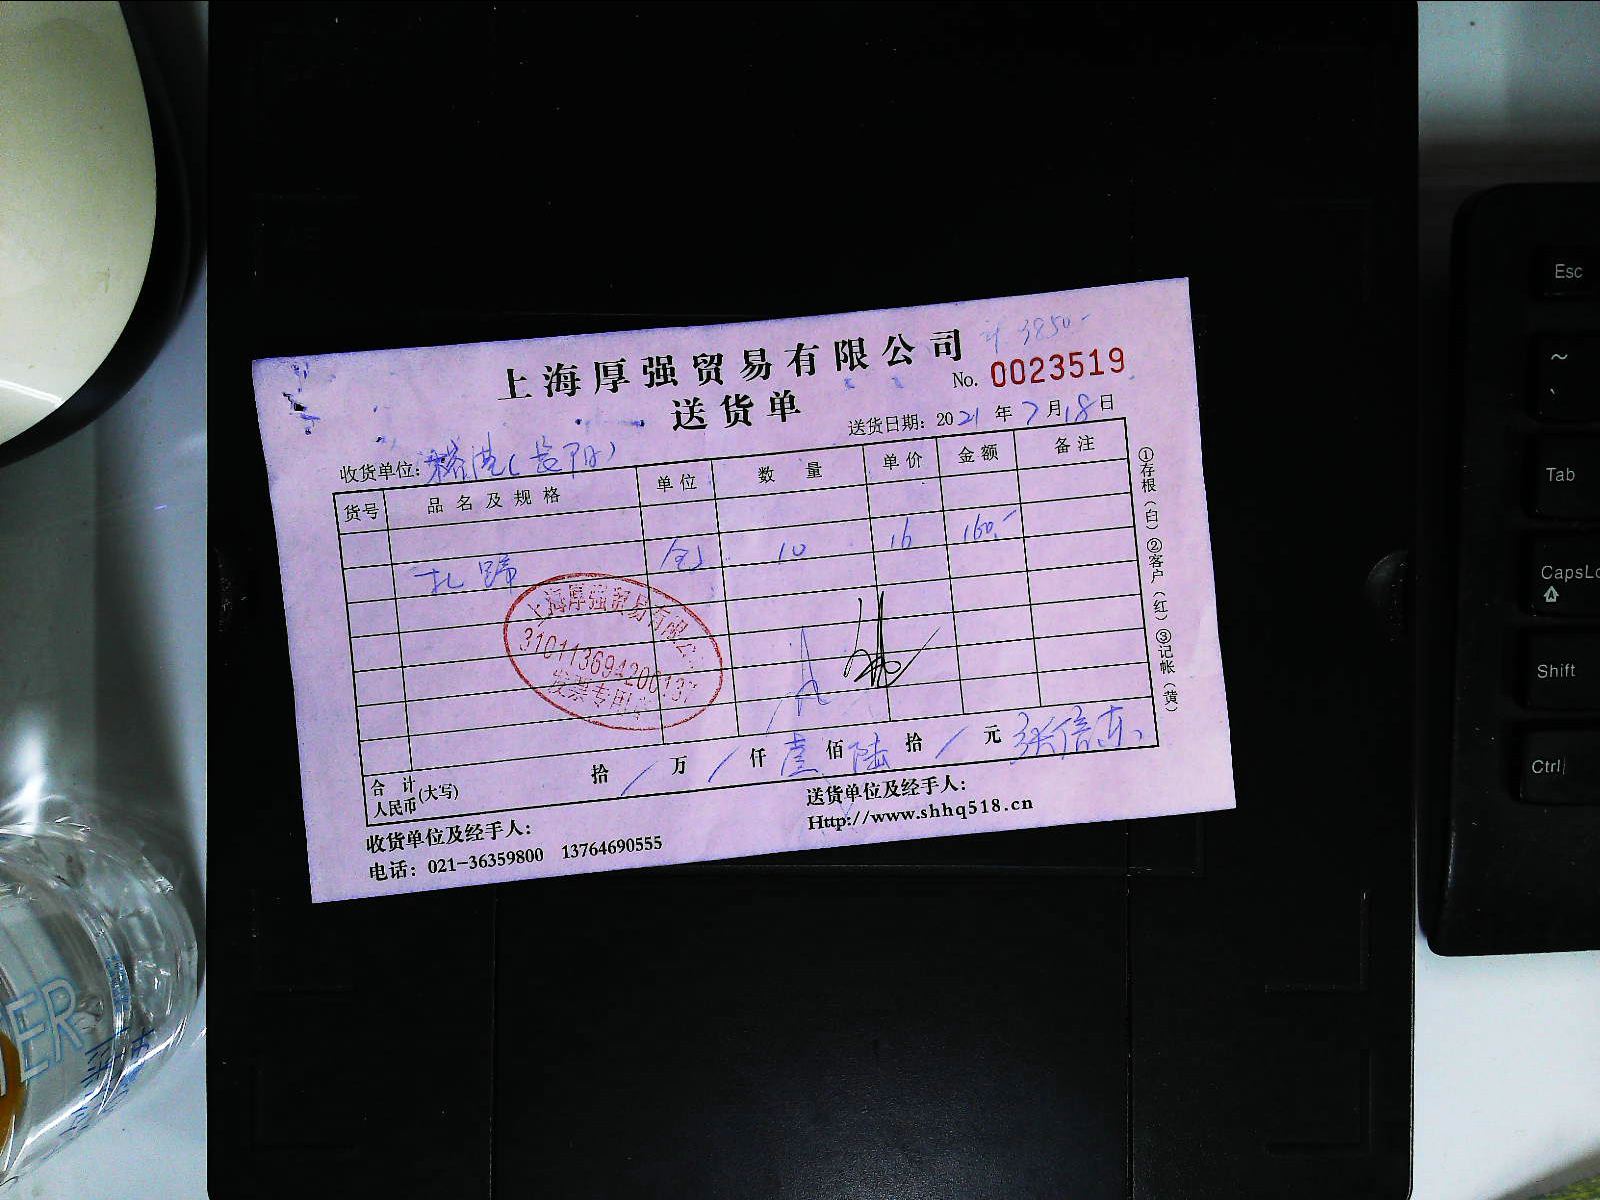 计 3850-
上海厚强贸易有限公司
No. 0023519
送货单
送货日期: 2021年7月18日
收货单位:
货号 品名及规格 单位 数量 单价 金额 备注
扎蹄 10 16 160.-
上海厚强贸易有限公司
310113694200137
发票专用章
合计人民币(大写) 拾 / 万 / 仟 壹 佰 陆 拾 / 元
收货单位及经手人:
送货单位及经手人:
电话: 021-36359800 13764690555
Http://www.shhq518.cn
①存根(白) ②客户(红) ③记帐(黄)
Esc
~
`
Tab
CapsLo
Shift
Ctrl
ER